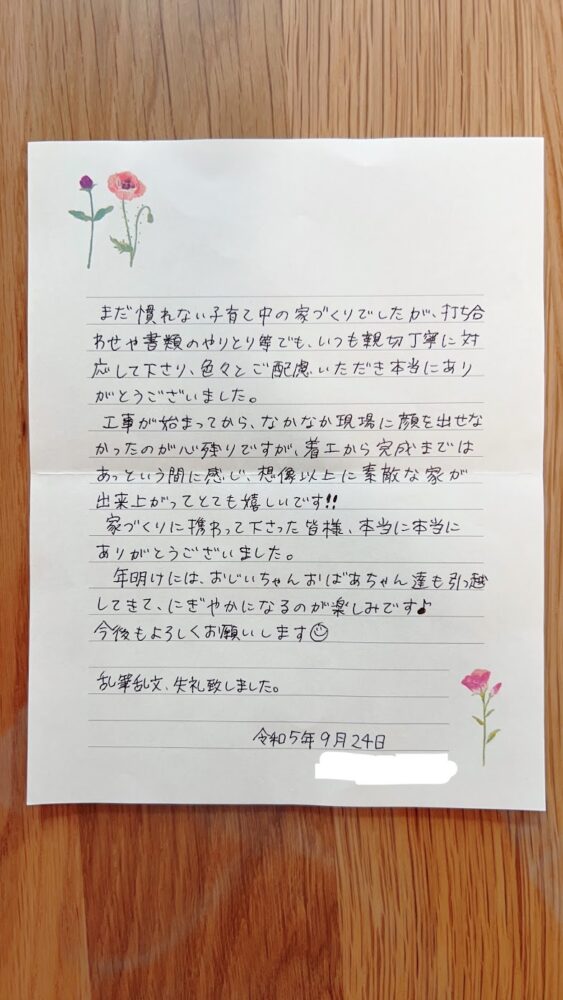 まだ慣れない子育て中の家づくりでしたが、打ち合
わせや書類のやりとり等でも、いつも親切丁寧に対
応して下さり、色々とご配慮いただき本当にあり
がとうございました。
工事が始まってから、なかなか現場に顔を出せな
かったのが心残りですが、着工から完成までは
あっという間に感じ、想像以上に素敵な家が
出来上がってとても嬉しいです!!
家づくりに携わって下さった皆様、本当に本当に
ありがとうございました。
年明けには、おじいちゃんおばあちゃん達も引っ越
してきて、にぎやかになるのが楽しみです♪
今後もよろしくお願いします☺
乱筆乱文、失礼致しました。
令和5年9月24日